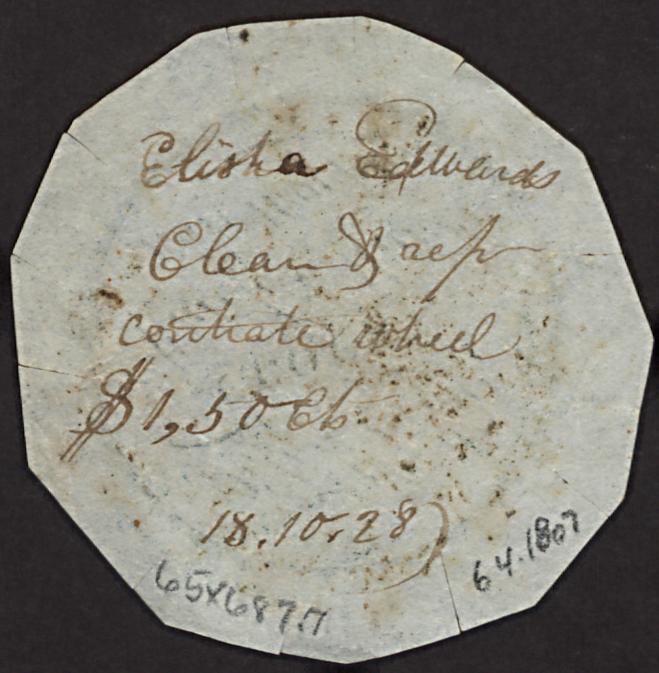 Elisha Edwards
Clean & rep
contrate wheel
$1,50 Cts
18.10.28)
64.1807
65x687.7